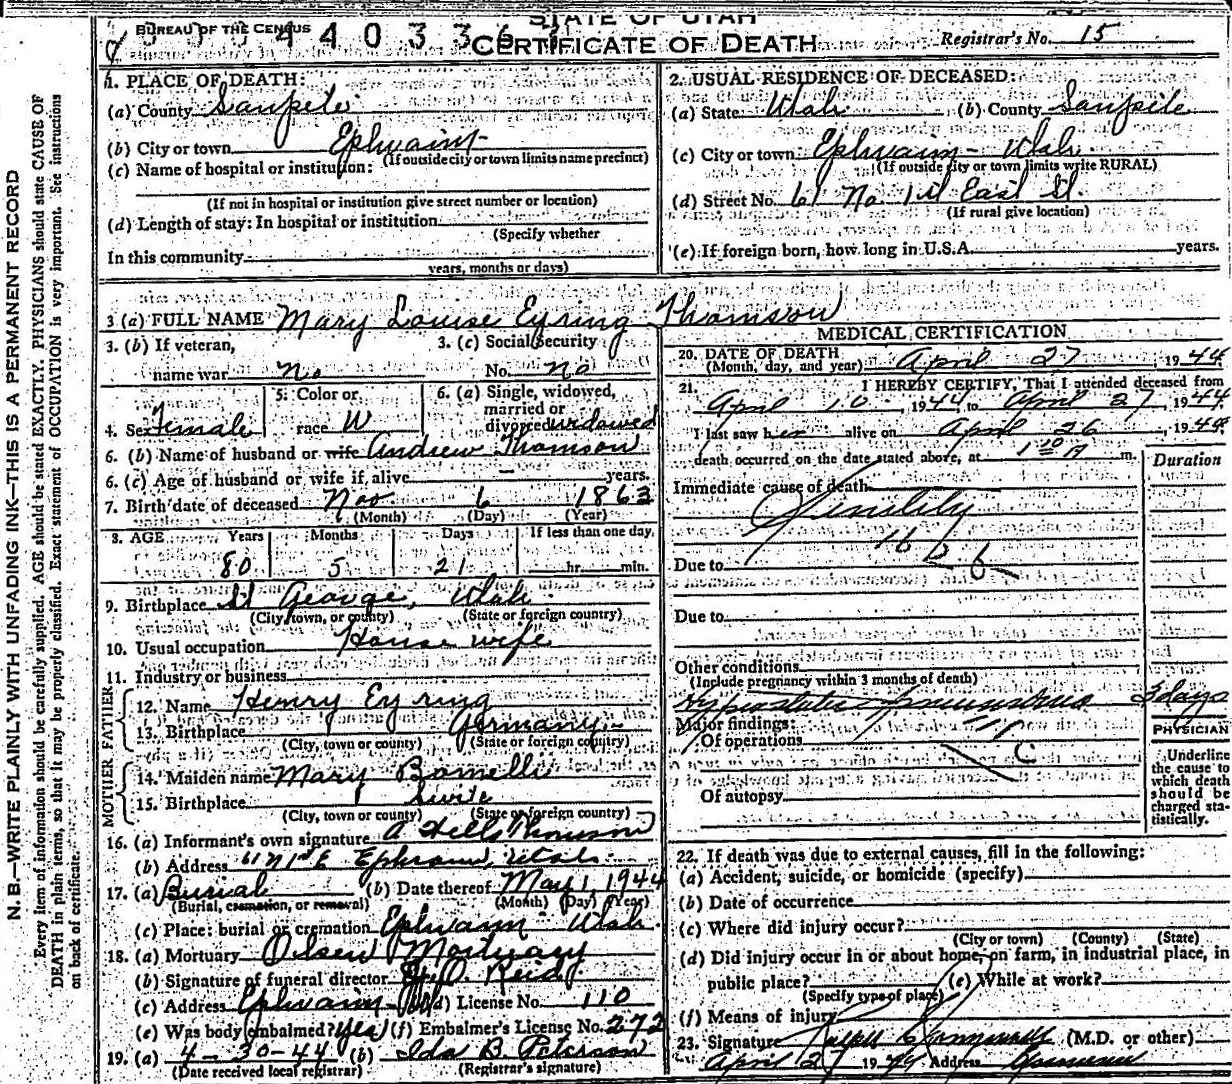 STATE OF UTAH
BUREAU OF THE CENSUS
CERTIFICATE OF DEATH
Registrar's No. 15
1. PLACE OF DEATH:
(a) County Sanpete
(b) City or town Ephraim
(If outside city or town limits name precinct)
(c) Name of hospital or institution:
(If not in hospital or institution give street number or location)
(d) Length of stay: In hospital or institution
(Specify whether
In this community
years, months or days)
2. USUAL RESIDENCE OF DECEASED:
(a) State Utah (b) County Sanpete
(c) City or town Ephraim - Utah.
(If outside city or town limits write RURAL)
(d) Street No. 61 No. 1st East St.
(If rural give location)
(e) If foreign born, how long in U.S.A. years.
3 (a) FULL NAME Mary Louise Eyring Thomson
3. (b) If veteran, 3. (c) Social Security
name war No No. no
4. Sex Female 5. Color or race W 6. (a) Single, widowed, married or divorced widowed
6. (b) Name of husband or wife Andrew Thomson
6. (c) Age of husband or wife if alive — years.
7. Birth date of deceased Nov 6 1863
(Month) (Day) (Year)
8. AGE Years Months Days If less than one day
80 5 21 hr. min.
9. Birthplace St George, Utah
(City, town, or county) (State or foreign country)
10. Usual occupation House wife
11. Industry or business
FATHER
12. Name Henry Eyring
13. Birthplace Germany
(City, town or county) (State or foreign country)
MOTHER
14. Maiden name Mary Bomelli
15. Birthplace
(City, town or county) (State or foreign country)
16. (a) Informant's own signature A Thomson
(b) Address 61 N 1st E Ephraim, Utah
17. (a) Burial (b) Date thereof May 1, 1944
(Burial, cremation, or removal) (Month) (Day) (Year)
(c) Place: burial or cremation Ephraim Utah
18. (a) Mortuary Olsen Mortuary
(b) Signature of funeral director O. Reid
(c) Address Ephraim (d) License No. 110
(e) Was body embalmed? Yes (f) Embalmer's License No. 272
19. (a) 4-30-44 (b) Ida B. Peterson
(Date received local registrar) (Registrar's signature)
MEDICAL CERTIFICATION
20. DATE OF DEATH
(Month, day, and year) April 27, 1944
21. I HEREBY CERTIFY, That I attended deceased from
April 10, 1944, to April 27, 1944
I last saw her alive on April 26, 1944
death occurred on the date stated above, at 1 10 A m.
Duration
Immediate cause of death
Senility
162 b
Due to
Due to
Other conditions
(Include pregnancy within 3 months of death)
Hypostatic Pneumonia 3 days
Major findings:
Of operations
Of autopsy
PHYSICIAN
Underline
the cause to
which death
should be
charged sta-
tistically.
22. If death was due to external causes, fill in the following:
(a) Accident, suicide, or homicide (specify)
(b) Date of occurrence
(c) Where did injury occur?
(City or town) (County) (State)
(d) Did injury occur in or about home, on farm, in industrial place, in
public place? (e) While at work?
(Specify type of place)
(f) Means of injury
23. Signature (M.D. or other)
April 27 1944 Address
N. B.—WRITE PLAINLY WITH UNFADING INK—THIS IS A PERMANENT RECORD
Every item of information should be carefully supplied. AGE should be stated EXACTLY. PHYSICIANS should state CAUSE OF
DEATH in plain terms, so that it may be properly classified. Exact statement of OCCUPATION is very important. See instructions
on back of certificate.